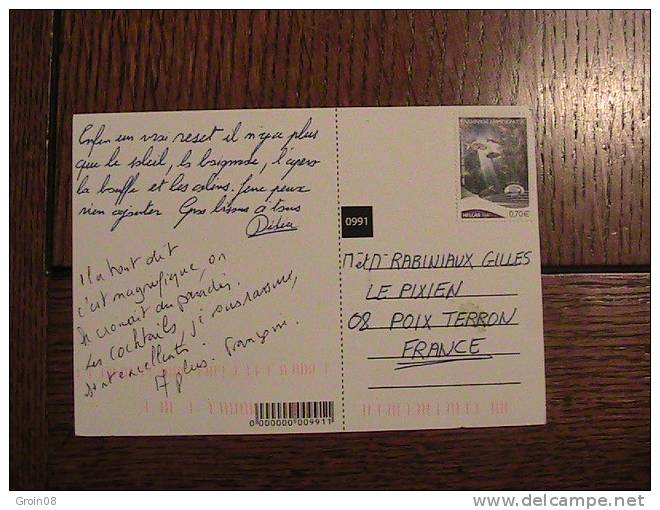 Enfin un vrai reset il n'y a plus
que le soleil, la baignade, l'apero
la bouffe et les calins. Je ne peux
rien ajouter Gros bisous à tous
Didier
Il a tout dit
c'est magnifique, on
se croirait au paradis.
Les cocktails, je vous rassure,
sont excellents.
A plus. Françoise.
HELLAS
0,70€
0991
RABINIAUX GILLES
LE PIXIEN
08 POIX TERRON
FRANCE
0 000000 009911
Groin08
delcampe.net